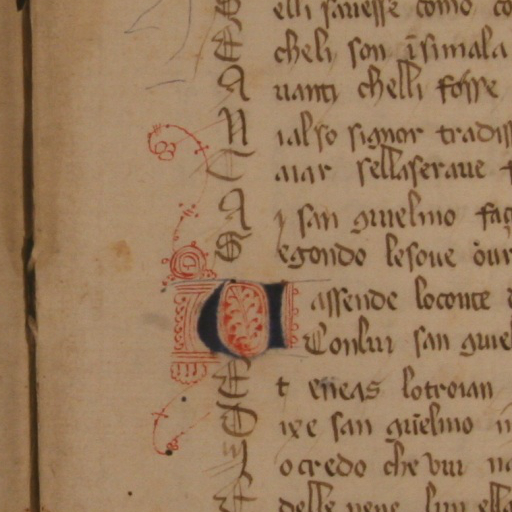 elli sauesse como co
E cheli son ĩsimala
A uanti chelli fosse
N ialso signor tradiss
C aiar sellaseraue
A y san guielmo faç
S egondo lesoue our
U assende loconte
Conlui san guiel
E t eneas lotroian
D ixe san gũelmo
I ocredo che vui na
E delle pene lun ella